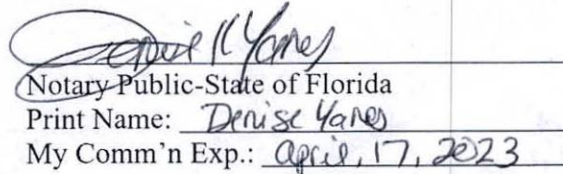 Denise K Yanes
Notary Public-State of Florida
Print Name: Denise Yanes
My Comm'n Exp.: April, 17, 2023